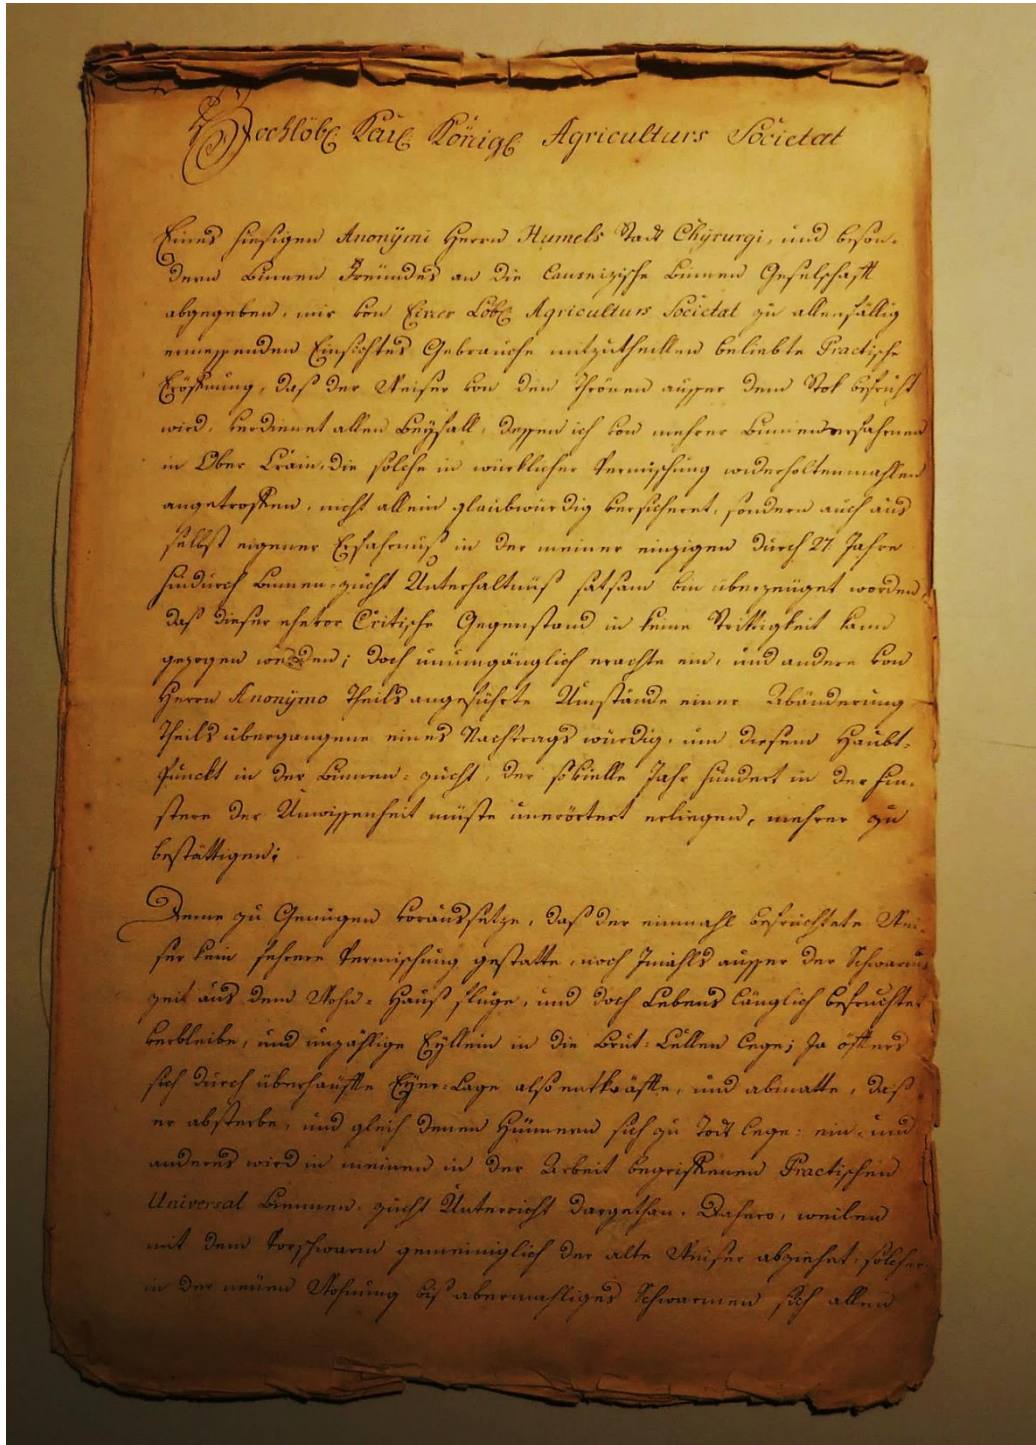 Hochlöbl Kail Königl Agriculturs Societat
Eines hiesigen Anonÿmi Herrn Humels Stadt Chÿrurgi, und beson-
dern Binnen Freündes an die Lausnizische Binnen Geselschafft
abgegeben, mir von Einer Löbl Agriculturs Societat zu allenfällig
ermessenden Einsichtes Gebrauche mitzutheillen beliebte Practische
Eröffnung, daß der Weiser von den Thrönen ausser dem Stok befrucht
wird, verdienet allen Beÿfall, dessen ich von mehrer Binnenerfahrnen
in Ober Crain, die solche in würcklicher Vermischung widerholtenmahlen
angetroffen, nicht allein glaubwürdig versicheret, sondern auch aus
selbst eigener Erfahrnuß in der meiner einzigen durch 27 Jahre
hindurch Binnen-zucht Unterhaltnuß satsam bin überzeüget worden,
daß dieser ehevor Critische Gegenstand in keine Strittigkeit kann
gezogen werden; doch unumgänglich erachte ein, und andere von
Herrn Anonÿmo theils angeführte Umstände einer Abänderung
theils übergangene eines Nachtrags würdig, um diesem Haubt-
Punckt in der Binnen-zucht, der so vielle Jahr hundert in der Fin-
stere der Unwissenheit müste unerörtert erliegen, mehrer zu
bestättigen:
Deme zu Genügen voraussetze, daß der einmahl befruchtete Wei-
ser kein fehrere Vermischung gestatte, noch Jmahls ausser der Schwarm
zeit aus dem Wohn-Hauß fluge, und doch Lebens länglich befruchtet
verbleibe, und unzählige Eÿllein in die Brut-Cellen lege; Ja öfters
sich durch überhauffte Eÿer-Lage also entkräffte, und abmatte, daß
er absterbe, und gleich denen Hünnern sich zu Todt lege: ein- und
anderes wird in meinen in der Arbeit begriffenen Practischen
Universal Biennen-zucht Unterricht dargethan. Dahero, weilen
mit dem Vorschwarm gemeiniglich der alte Weiser abziehet, solcher
in der neüen Wohnung biß abermahliges Schwarmen sich allen